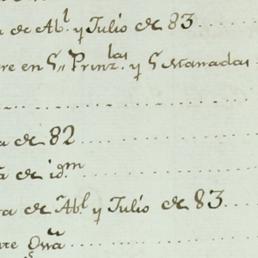 a de Ab.l y Julio de 83
re en S.n Prinz.las y S Manadas
a de 82
a de id.m
ra de Ab.l y Julio de 83.
re